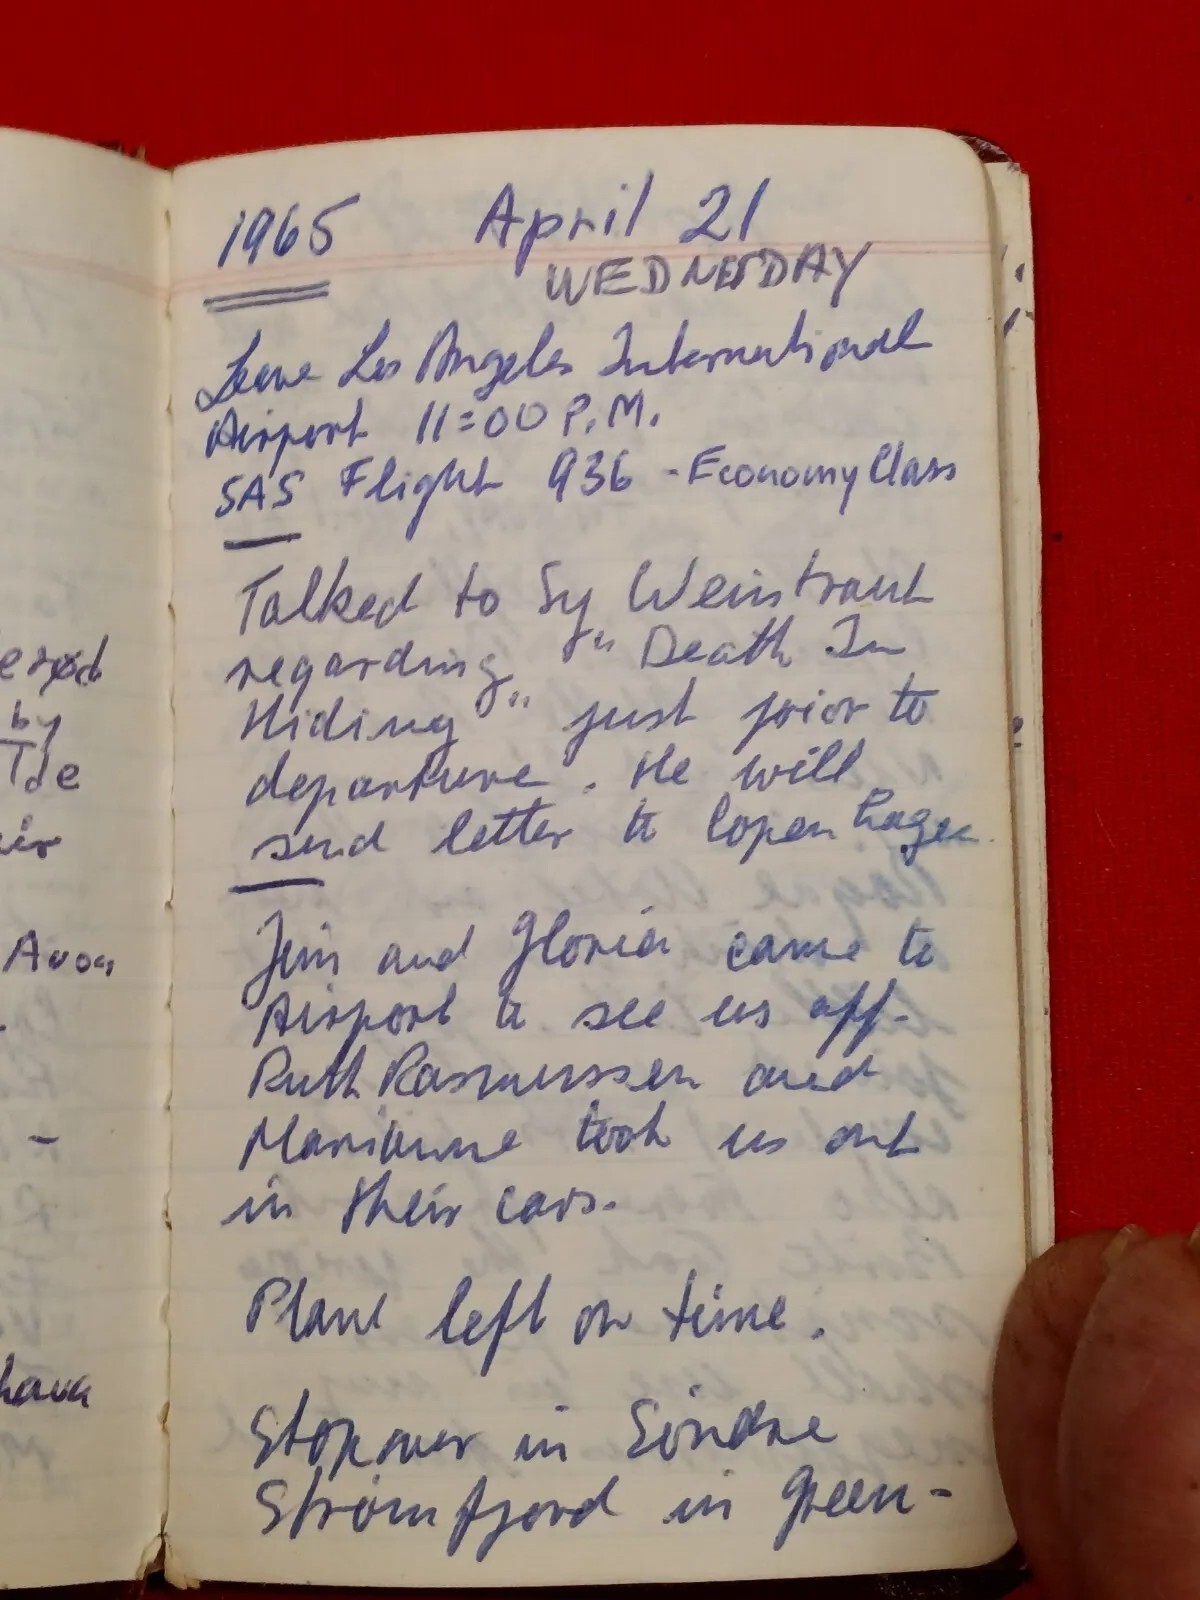 1965 April 21
WEDNESDAY
Leave Los Angeles International
Airport 11:00 P.M.
SAS Flight 936 - Economy Class
Talked to Sy Weintraub
regarding "Death In
Hiding" just prior to
departure. He will
send letter to Copenhagen.
Jim and Gloria came to
Airport to see us off.
Ruth Rasmussen and
Marianne took us out
in their cars.
Plane left on time.
Stopover in Söndre
Strömfjord in Green-
by
Tde
Avon